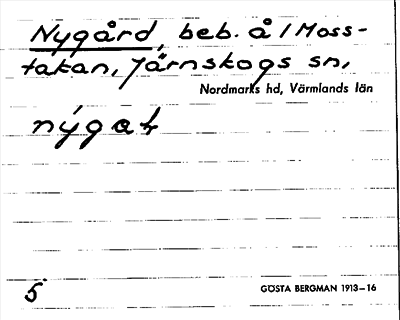 Nygård, beb. å 1 Moss-
takan, Järnskogs sn,
Nordmarks hd, Värmlands län
nýgaṯ
5
GÖSTA BERGMAN 1913–16